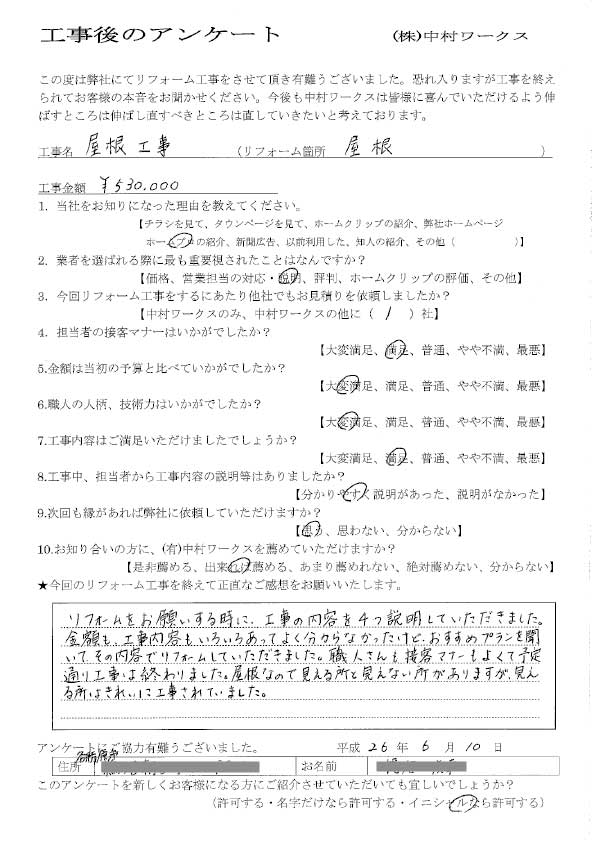 工事後のアンケート　(株)中村ワークス
この度は弊社にてリフォーム工事をさせて頂き有難うございました。恐れ入りますが工事を終え
られてお客様の本音をお聞かせください。今後も中村ワークスは皆様に喜んでいただけるよう伸
ばすところは伸ばし直すべきところは直していきたいと考えております。
工事名　屋根工事　（リフォーム箇所　屋根　）
工事金額　¥530.000
1. 当社をお知りになった理由を教えてください。
【チラシを見て、タウンページを見て、ホームクリップの紹介、弊社ホームページ
ホームプロの紹介、新聞広告、以前利用した、知人の紹介、その他（　）】
2. 業者を選ばれる際に最も重要視されたことはなんですか？
【価格、営業担当の対応・説明、評判、ホームクリップの評価、その他】
3. 今回リフォーム工事をするにあたり他社でもお見積りを依頼しましたか？
【中村ワークスのみ、中村ワークスの他に（ 1 ）社】
4. 担当者の接客マナーはいかがでしたか？
【大変満足、満足、普通、やや不満、最悪】
5.金額は当初の予算と比べていかがでしたか？
【大変満足、満足、普通、やや不満、最悪】
6.職人の人柄、技術力はいかがでしたか？
【大変満足、満足、普通、やや不満、最悪】
7.工事内容はご満足いただけましたでしょうか？
【大変満足、満足、普通、やや不満、最悪】
8.工事中、担当者から工事内容の説明等はありましたか？
【分かりやすく説明があった、説明がなかった】
9.次回も縁があれば弊社に依頼していただけますか？
【思う、思わない、分からない】
10.お知り合いの方に、(有)中村ワークスを薦めていただけますか？
【是非薦める、出来れば薦める、あまり薦めれない、絶対薦めない、分からない】
★今回のリフォーム工事を終えて正直なご感想をお願いいたします。
リフォームをお願いする時に、工事の内容を4つ説明していただきました。
金額も、工事内容もいろいろあってよく分からなかったけど、おすすめプランを聞
いて、その内容でリフォームしていただきました。職人さんも接客マナーもよくて予定
通り工事は終わりました。屋根なので見える所と見えない所がありますが、見え
る所はきれいに工事されていました。
アンケートにご協力有難うございました。　平成 26 年 6 月 10 日
各務原市
住所　お名前
このアンケートを新しくお客様になる方にご紹介させていただいても宜しいでしょうか？
（許可する・名字だけなら許可する・イニシャルなら許可する）